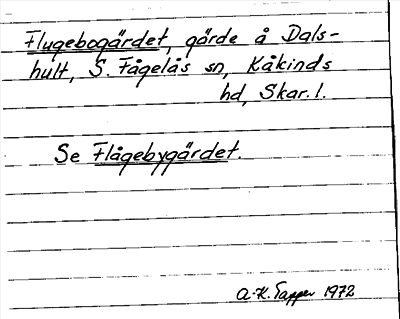 Flugebogärdet, gärde å Dals-
hult, S. Fågelås sn, Kåkinds
hd, Skar. l.
Se Flågebygärdet.
A-K. Tapper 1972